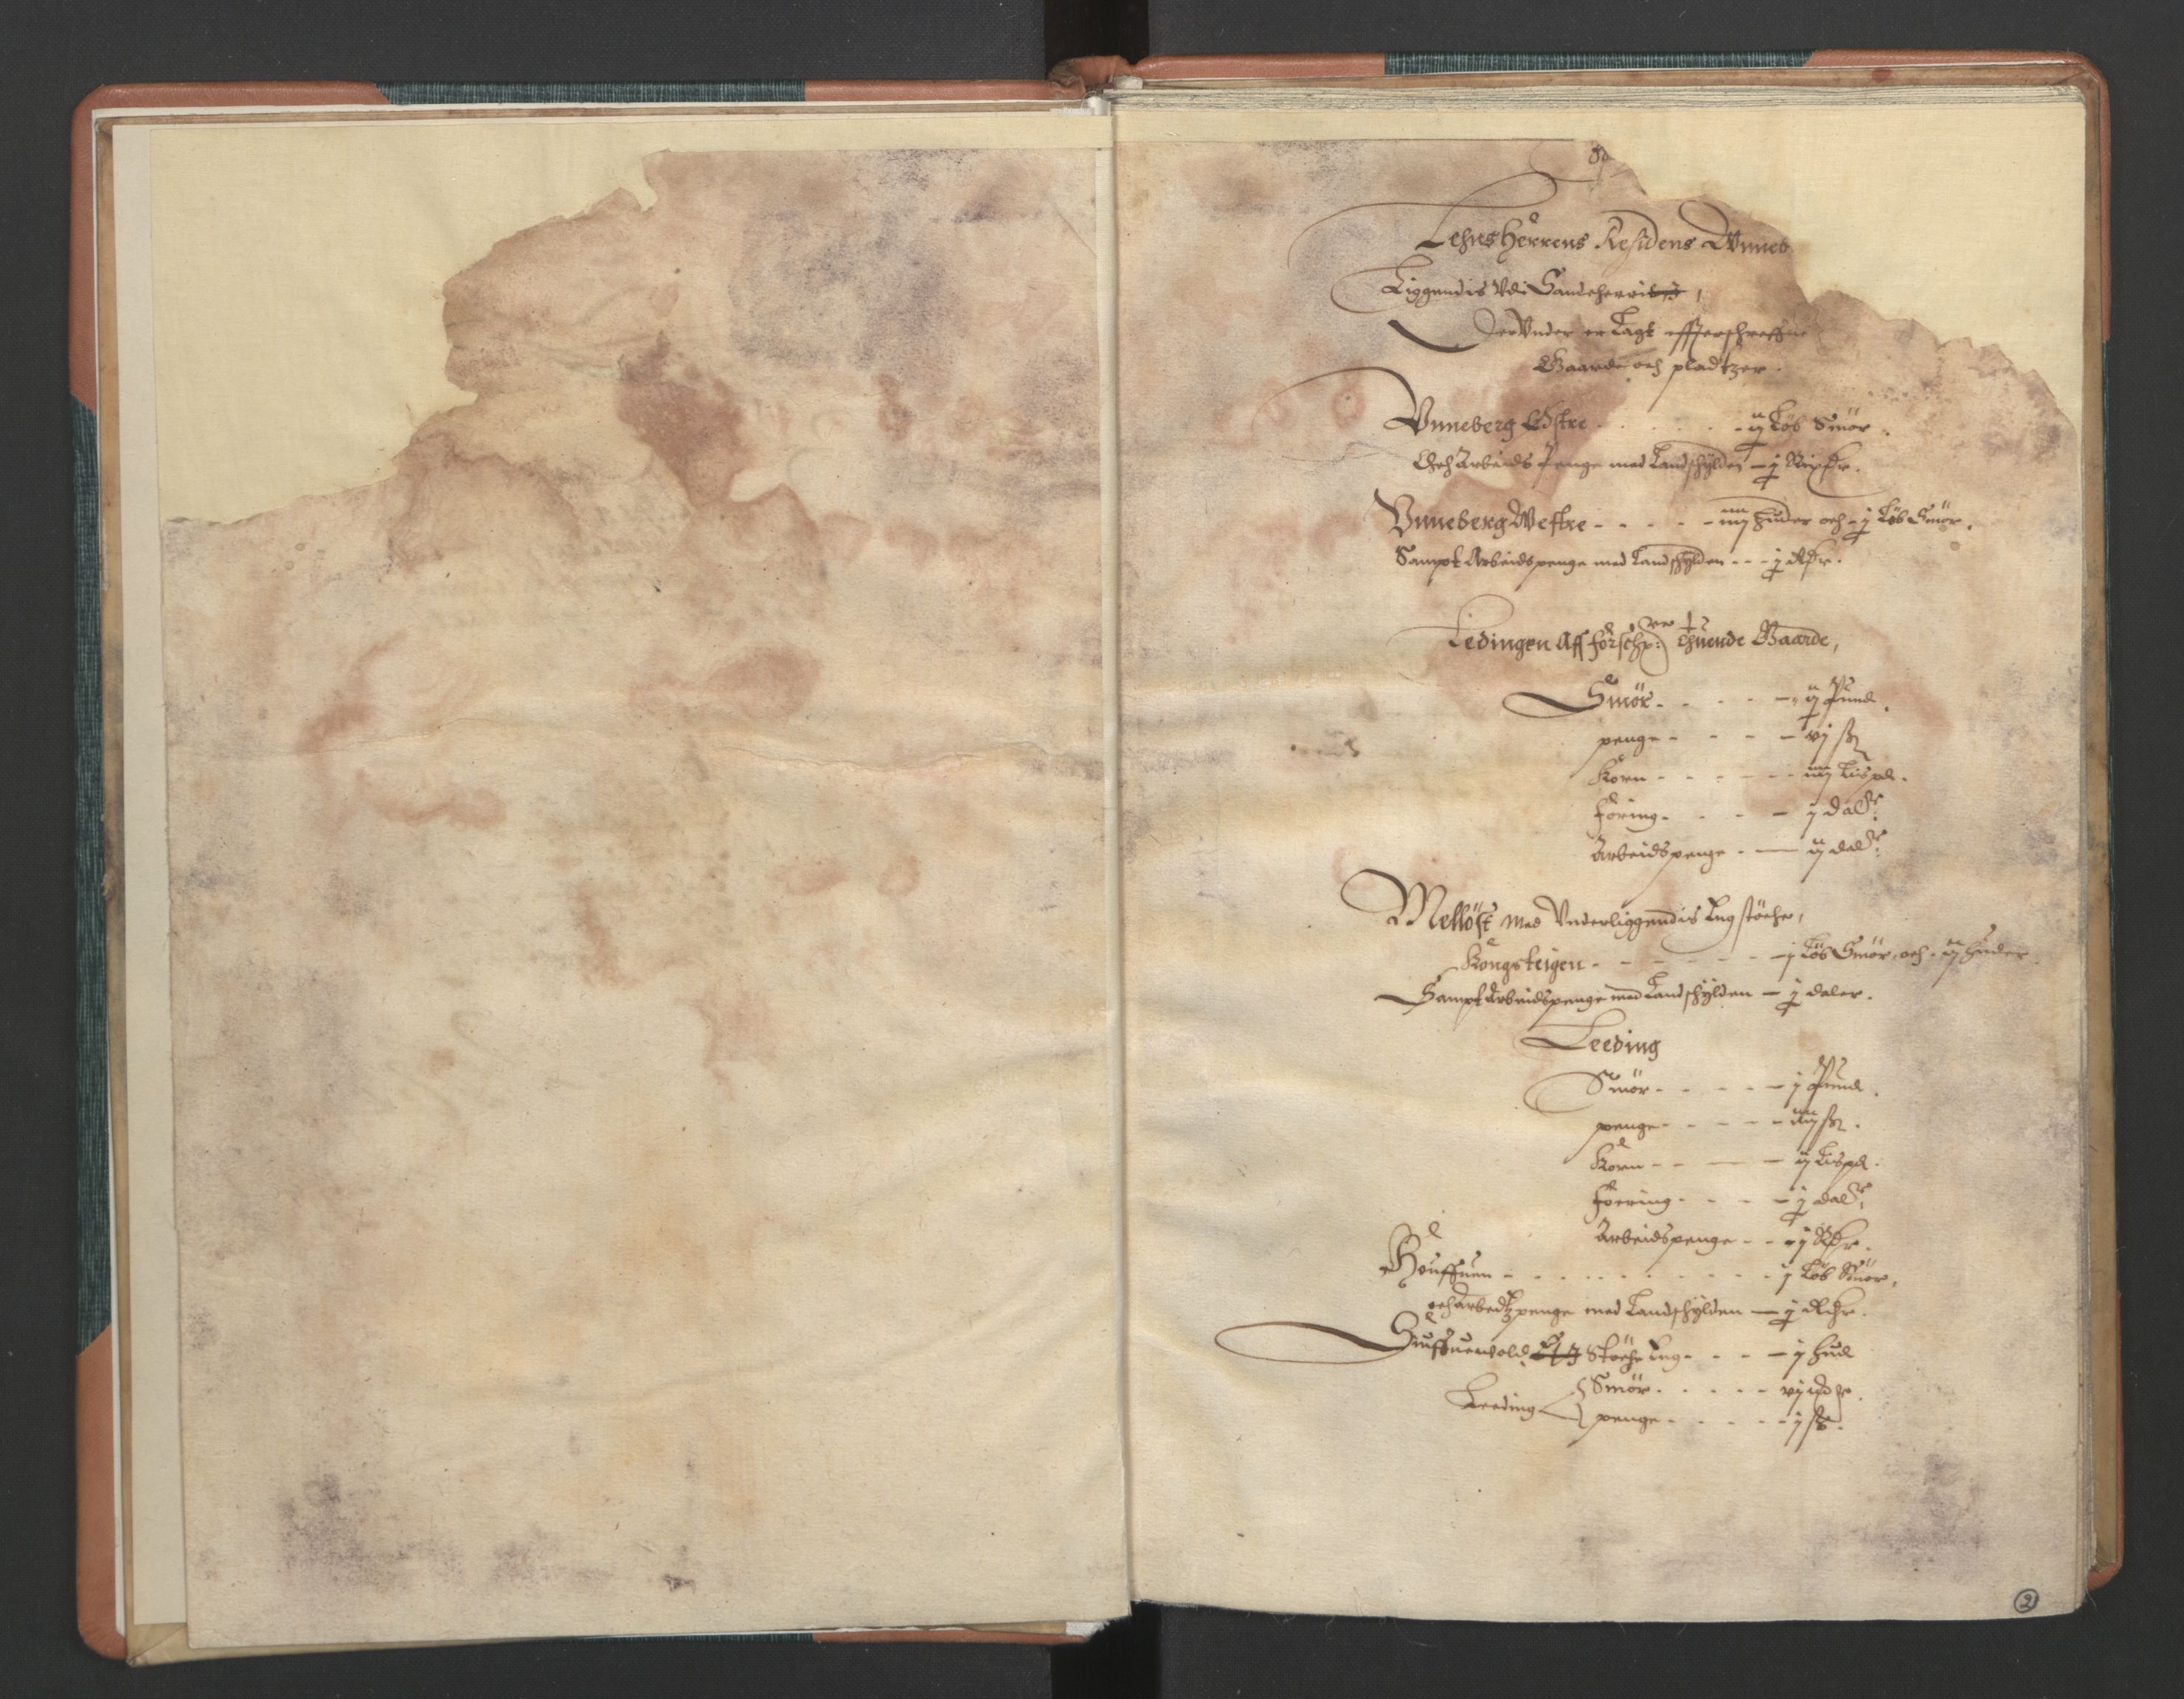 LehnsHerrens Residens Wnneb
Liggendis Vdi Sandeherrit
Der Vnder er Lagt effterschreffne
Gaarde och pladtzer.
Vnneberg Østre - - - - ij Løb Smør.
Och Arbeids Penge med Landschylden - j Rixdr.
Vnneberg Westre - - - - - iiij huder och - j Løb Smør.
Sampt Arbeidspenge med Landschylden - - - j Rdr.
Ledingen Aff forschr: ne tuende Gaarde,
Smør - - - - - ij Pund.
penge - - - - - vj ß
Korn - - - - - - iiij Lispd.
Føring - - - - j dalr.
Arbeidspenge - — ij dalr.
Melløst med Vnderliggendis Eng støche,
Kongsteigen - - - - - - - j Løb Smør, och - ij huder
Sampt Arbeidspenge med Landschylden - j daler.
Leeding
Smør - - - - - j Pund.
penge - - - - - iiij ß.
Korn - - — - ij Lispd.
Foering - - - - j dalr.
Arbeidspenge - - - j Rdr.
Houffuen - - - - - - - - - j Løb Smør,
och Arbedtzpenge med Landschylden — j Rdr.
støche Eng - - - - j hud
Leeding { Smør - - - - - vj
penge - - - - - j ß.
2